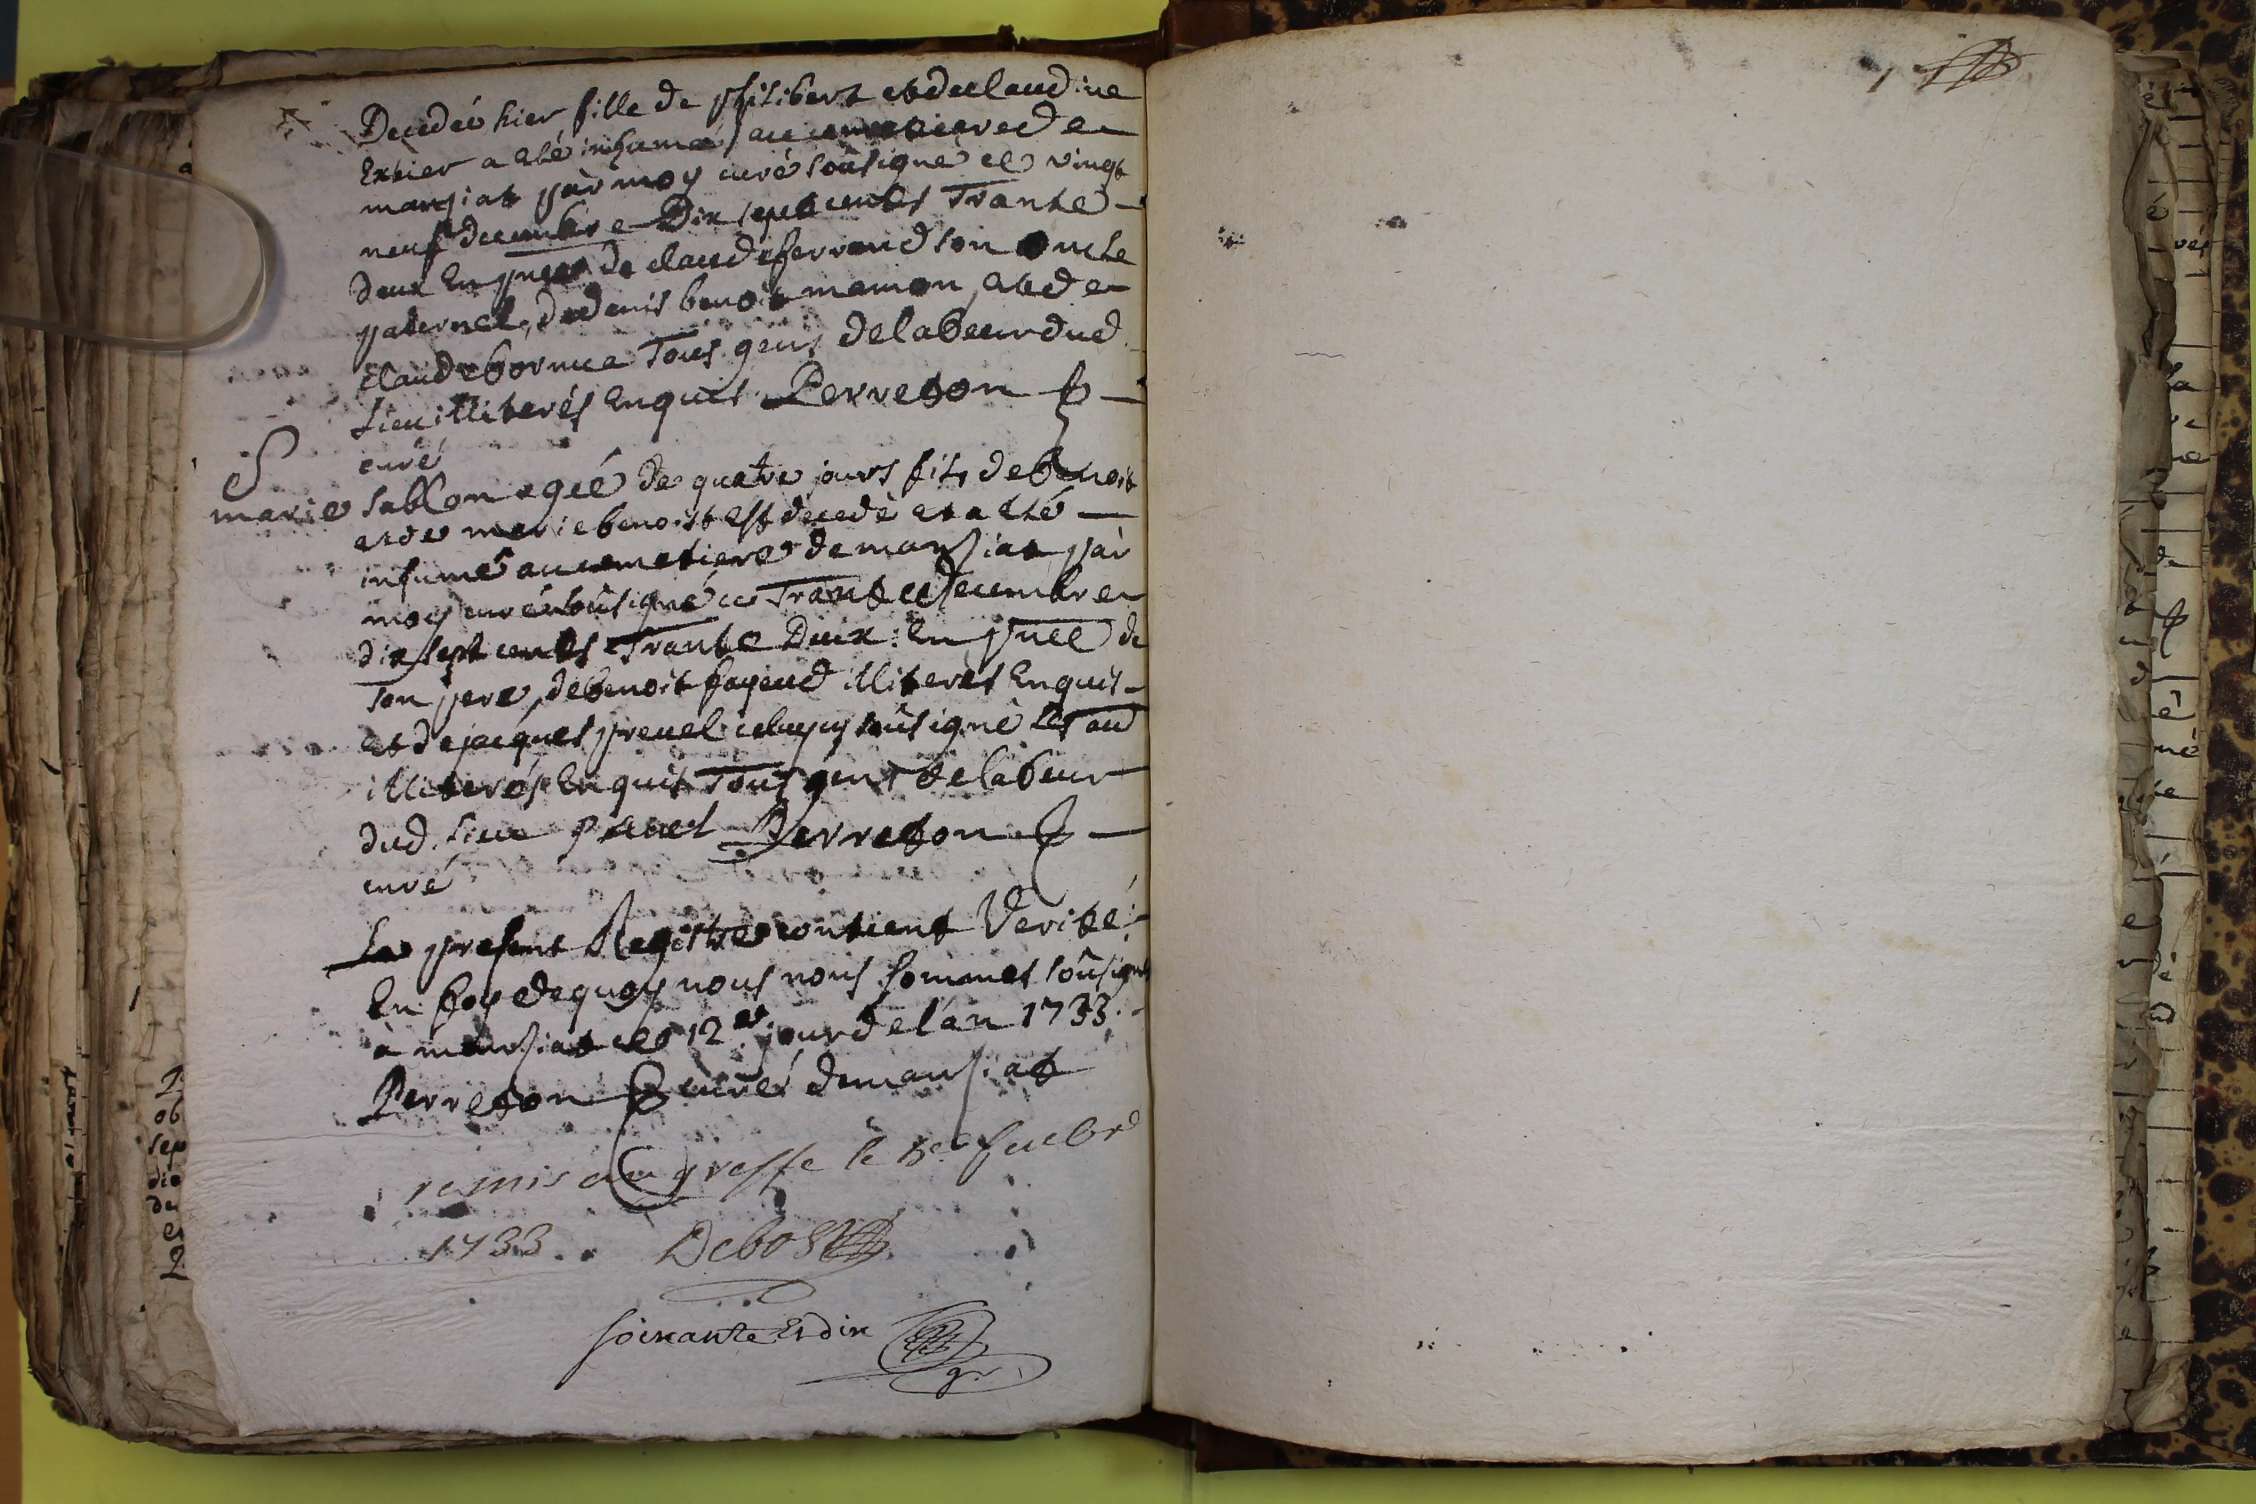 Decedeé hier fille de philibert et de claudine
Extier a eté inhumeé au cemetiere de
mansiat par moy curé soûsigné ce vingt
neuf decembre Dix sept cents Trante
deux En pnce de claude ferrand son oncle
paternel, de denis benoit mamon, et de
claude bornua Tous gens de labeur dud
Lieu illiterés Enquis Perreton
curé
S
marie Sablon ageé de quatre jours fils de benoit
et de marie benoist est decedé et a eté
inhumé au cemetiere de mansiat par
moy curé soûsigné ce Trante decembre
dix sept cents Trante Deux: En pnce de
son pere, de benoit fayeud illiterés Enquis
et de jacques prevel celuycy soûsigné
illiterés Enquis Tous gens de labeur
dud. Lieu prevel Perreton
curé
Le present Registre contient Verité:
En foy de quoy nous nous sommes soûsignés
à mansiat ce 12er jour de l'an 1733.
Perreton curé de mansiat
remis au greffe le
1733. Debost
soixante et dix